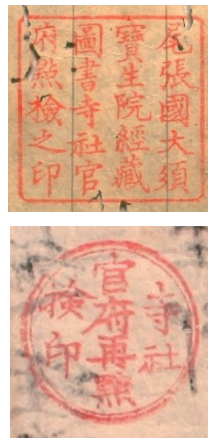 尾張國大須
寶生院經藏
圖書寺社官
府點檢之印
寺社
官府再點
検印